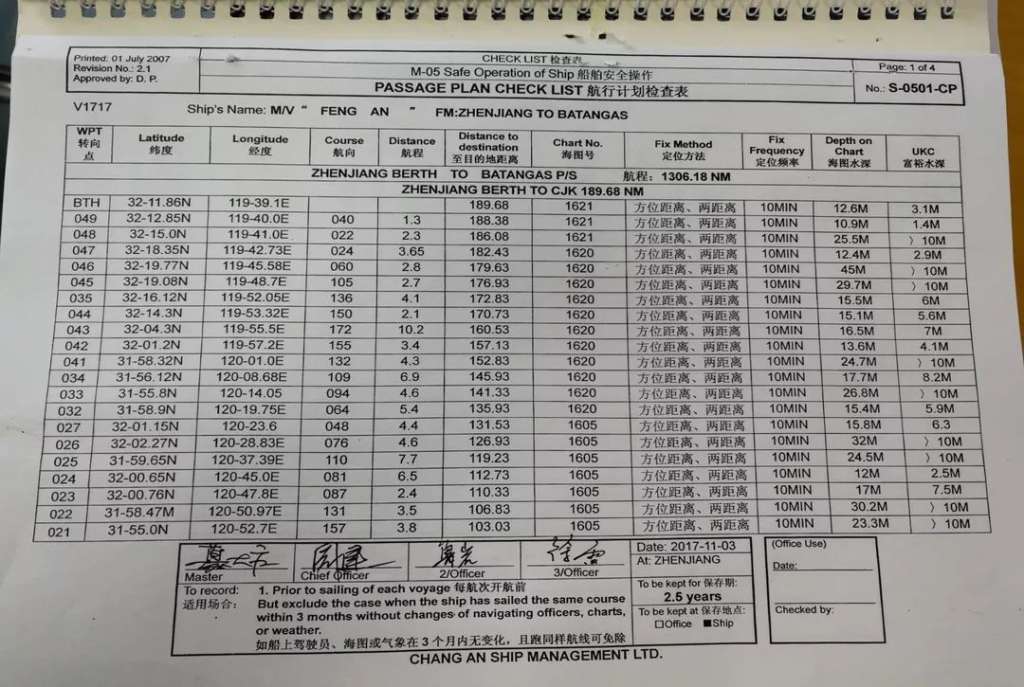 Printed: 01 July 2007
Revision No.: 2.1
Approved by: D. P.
CHECK LIST 检查表
M-05 Safe Operation of Ship 船舶安全操作
PASSAGE PLAN CHECK LIST 航行计划检查表
Page: 1 of 4
No.: S-0501-CP
V1717 Ship's Name: M/V “ FENG AN ” FM:ZHENJIANG TO BATANGAS
WPT 转向点 Latitude 纬度 Longitude 经度 Course 航向 Distance 航程 Distance to destination 至目的地距离 Chart No. 海图号 Fix Method 定位方法 Fix Frequency 定位频率 Depth on Chart 海图水深 UKC 富裕水深
ZHENJIANG BERTH TO BATANGAS P/S 航程：1306.18 NM
ZHENJIANG BERTH TO CJK 189.68 NM
BTH 32-11.86N 119-39.1E 189.68 1621 方位距离、两距离 10MIN 12.6M 3.1M
049 32-12.85N 119-40.0E 040 1.3 188.38 1621 方位距离、两距离 10MIN 10.9M 1.4M
048 32-15.0N 119-41.0E 022 2.3 186.08 1621 方位距离、两距离 10MIN 25.5M 〉10M
047 32-18.35N 119-42.73E 024 3.65 182.43 1620 方位距离、两距离 10MIN 12.4M 2.9M
046 32-19.77N 119-45.58E 060 2.8 179.63 1620 方位距离、两距离 10MIN 45M 〉10M
045 32-19.08N 119-48.7E 105 2.7 176.93 1620 方位距离、两距离 10MIN 29.7M 〉10M
035 32-16.12N 119-52.05E 136 4.1 172.83 1620 方位距离、两距离 10MIN 15.5M 6M
044 32-14.3N 119-53.32E 150 2.1 170.73 1620 方位距离、两距离 10MIN 15.1M 5.6M
043 32-04.3N 119-55.5E 172 10.2 160.53 1620 方位距离、两距离 10MIN 16.5M 7M
042 32-01.2N 119-57.2E 155 3.4 157.13 1620 方位距离、两距离 10MIN 13.6M 4.1M
041 31-58.32N 120-01.0E 132 4.3 152.83 1620 方位距离、两距离 10MIN 24.7M 〉10M
034 31-56.12N 120-08.68E 109 6.9 145.93 1620 方位距离、两距离 10MIN 17.7M 8.2M
033 31-55.8N 120-14.05 094 4.6 141.33 1620 方位距离、两距离 10MIN 26.8M 〉10M
032 31-58.9N 120-19.75E 064 5.4 135.93 1620 方位距离、两距离 10MIN 15.4M 5.9M
027 32-01.15N 120-23.6 048 4.4 131.53 1605 方位距离、两距离 10MIN 15.8M 6.3
026 32-02.27N 120-28.83E 076 4.6 126.93 1605 方位距离、两距离 10MIN 32M 〉10M
025 31-59.65N 120-37.39E 110 7.7 119.23 1605 方位距离、两距离 10MIN 24.5M 〉10M
024 32-00.65N 120-45.0E 081 6.5 112.73 1605 方位距离、两距离 10MIN 12M 2.5M
023 32-00.76N 120-47.8E 087 2.4 110.33 1605 方位距离、两距离 10MIN 17M 7.5M
022 31-58.47M 120-50.97E 131 3.5 106.83 1605 方位距离、两距离 10MIN 30.2M 〉10M
021 31-55.0N 120-52.7E 157 3.8 103.03 1605 方位距离、两距离 10MIN 23.3M 〉10M
Master Chief Officer 2/Officer 3/Officer
Date: 2017-11-03
At: ZHENJIANG
(Office Use)
Date:
Checked by:
To record: 适用场合：
1. Prior to sailing of each voyage 每航次开航前
But exclude the case when the ship has sailed the same course
within 3 months without changes of navigating officers, charts,
or weather.
如船上驾驶员、海图或气象在 3 个月内无变化，且跑同样航线可免除
To be kept for 保存期:
2.5 years
To be kept at 保存地点:
□Office ■Ship
CHANG AN SHIP MANAGEMENT LTD.